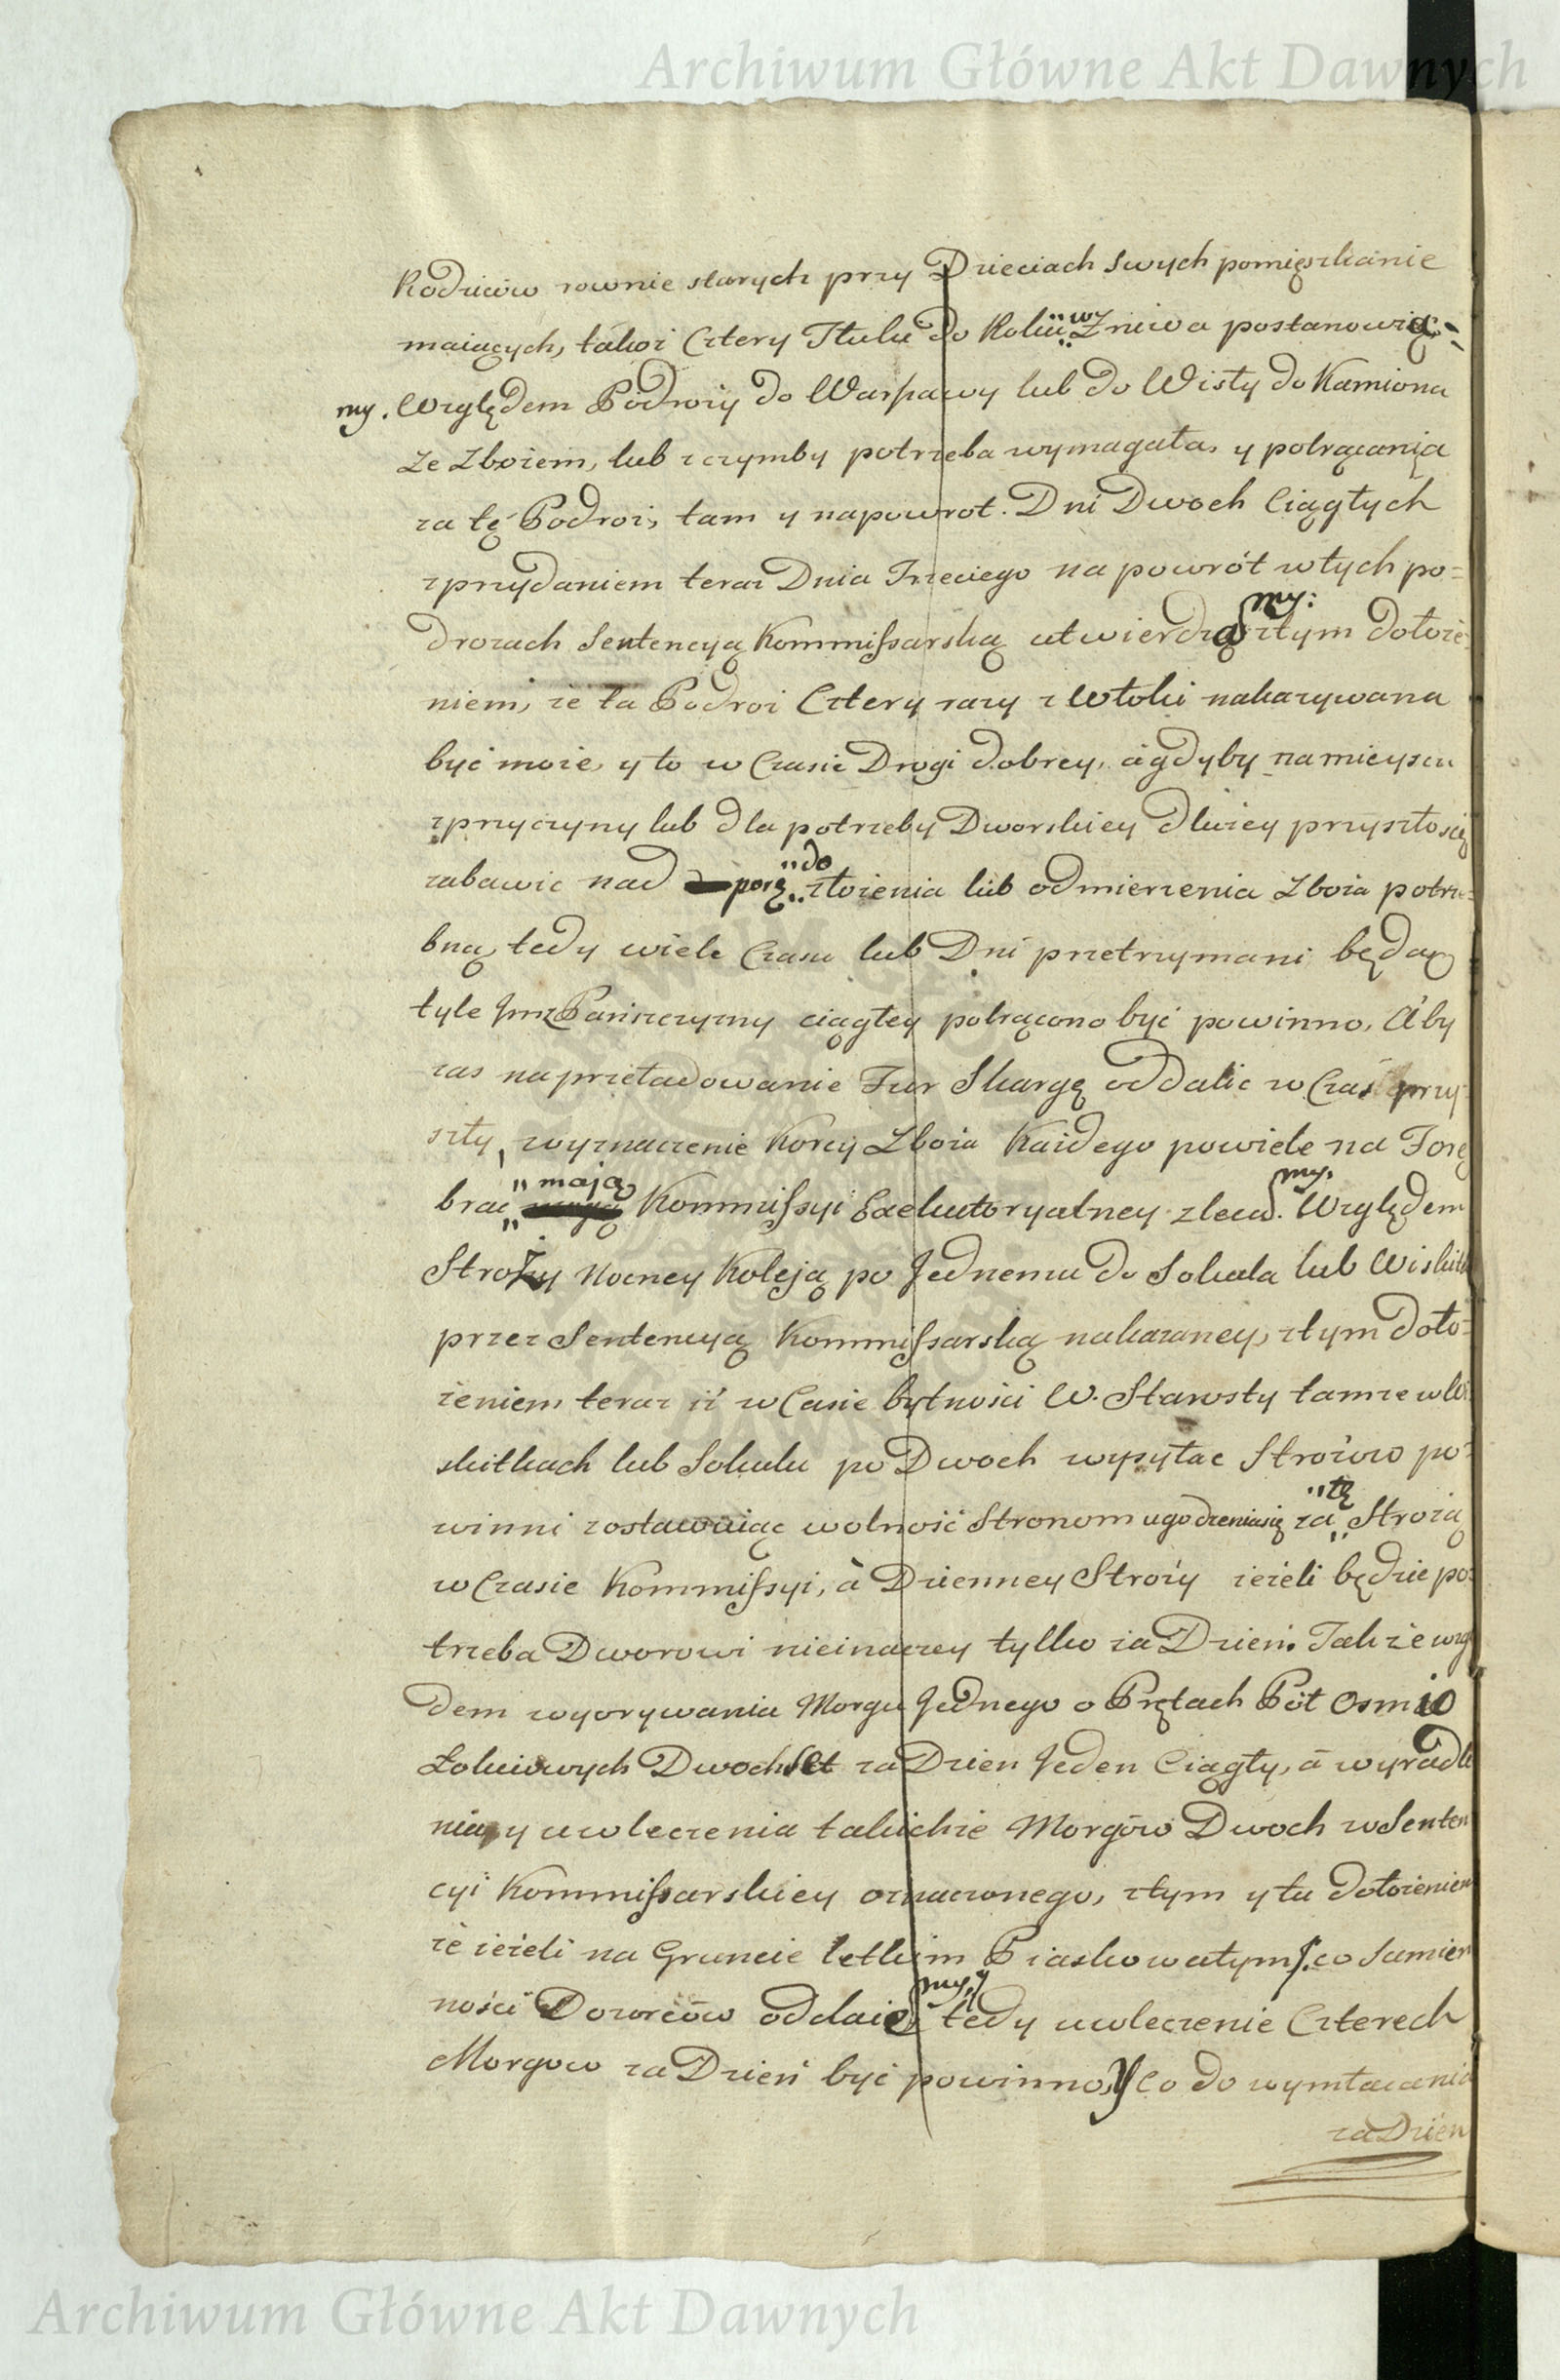 Archiwum Główne Akt Dawnych
Rodziców rownie starych przy Dzieciach swych pomięszkanie
maiących, takoż Cztery Tłuki do Roku w Żniwa postanowią-
my. Względem Podroży do Warszawy lub do Wisły do Kamiona
ze Zbożem, lub z czymby potrzeba wymagała, y potrącania
za tę Podroż, tam y napowrot. Dni Dwoch Ciągłych
z przydaniem teraz Dnia Trzeciego na powrót w tych po=
drozach Sentencyą Kommissarską utwierdzamy: z tym dołoże=
niem, że ta Podroż Cztery razy z Włoki nakazywana
być może, y to w Czasie Drogi dobrey, á gdyby na mieyscu
z przyczyny lub dla potrzeby Dworskiey dłużey przyszło się
zabawic nad porę do złożenia lub odmierzenia Zboża potrze=
bną, tedy wiele Czasu lub Dni przetrzymani będą
tyle Jmz Pańszczyzny ciągłey potrącono być powinno, Aby
zas na przeładowanie Fur Skargę oddalic w Czas przy=
szły, wyznaczenie Korcy Zboża Każdego powiele na Forę
brac mają Kommissyi Exekutoryalney zlecamy. Względem
Stroży Nocney Koleją po Jednemu do Sokula lub Wiskitek
przez Sentencyą Kommissarską nakazaney, z tym doło=
żeniem teraz iż w Casie bytności W. Starosty tamze w Wi=
skitkach lub Sokulu po Dwoch wysyłac Strożów po=
winni zostawuiąc wolność Stronom ugodzenia się za tę Strożą
w Czasie Kommissyi, à Dzienney Stroży ieżeli będzie po=
trzeba Dworowi nieinaczey tylko za Dzień. Takze wzglę
dem wyorywania Morgu Jednego o Prętach Pół Osmio
Łokciowych Dwochset za Dzien Jeden Ciągły, á wyradle
nia, y uwleczenia takichże Morgów Dwoch w Senten
cyi Kommissarskiey oznaczonego, z tym y tu dołożeniem
że ieżeli na Gruncie letkim Piaskowatym /: co Sumien
ności Dozorców oddaiemy, y tedy uwleczenie Czterech
Morgow za Dzień być powinno, Y Co do wymłacania
za Dzień
Archiwum Główne Akt Dawnych